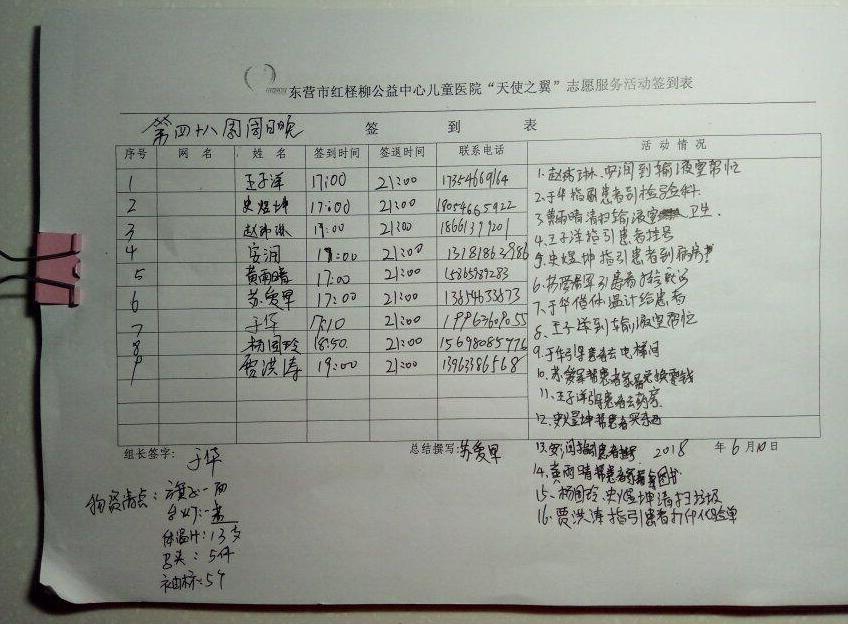 东营市红柽柳公益中心儿童医院“天使之翼”志愿服务活动签到表
第四十八周周日晚 签到表
序号 网名 姓名 签到时间 签退时间 联系电话 活动情况
1 王子洋 17:00 21:00 17354669164
2 史煜坤 17:00 21:00 18054665922
3 赵琳 17:00 21:00 18661379201
4 安润 17:00 21:00 13181863986
5 黄雨晴 17:00 21:00 15865989283
6 苏爱军 17:00 21:00 13654633673
7 于华 17:10 21:00
8 杨国玲 18:50 21:00 15698085776
9 贾洪涛 19:00 21:00 13963386568
1、赵琳、安润到输液室帮忙
2、于华指引患者到检验科
3、黄雨晴清扫输液室卫生
4、王子洋指引患者挂号
5、史煜坤指引患者到病房
6、苏爱军引患者
7、于华借体温计给患者
8、王子洋到输液室帮忙
9、于华引导患者去电梯间
10、苏爱军帮患者家属兑换零钱
11、王子洋引患者去药房
12、史煜坤帮患者买东西
组长签字: 于华 总结撰写: 苏爱军 2018年6月10日
13、安润指引患者挂号
14、黄雨晴帮患者家属拿图书
15、杨国玲、史煜坤清扫垃圾
16、贾洪涛指引患者打印化验单
物资清点: 旗子:一面
台灯:一盏
体温计:13支
马夹:5件
袖标:5个